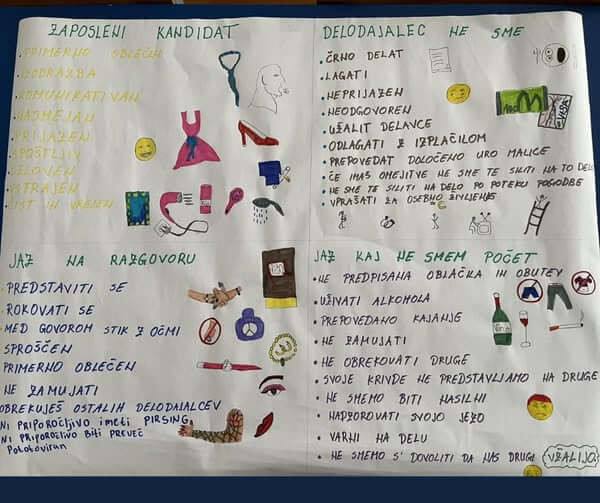 ZAPOSLENI KANDIDAT
PRIMERNO OBLEČEN
IZOBRAZBA
KOMUNIKATIVAN
NASMEJAN
PRIJAZEN
SPOŠTLJIV
DELOVEN
VSTRAJEN
ČIST IN UREJEN
DELODAJALEC NE SME
ČRNO DELAT
LAGATI
NEPRIJAZEN
NEODGOVOREN
UŽALIT DELAVCE
ODLAGATI Z IZPLAČILOM
PREPOVEDAT DOLOČENO URO MALICE
ČE IMAŠ OMEJITVE NE SME TE SILITI NA TO DELO
NE SME TE SILITI NA DELO PO POTEKU POGODBE
VPRAŠATI ZA OSEBNO ŽIVLJENJE
VISA
JAZ NA RAZGOVORU
PREDSTAVITI SE
ROKOVATI SE
MED GOVOROM STIK Z OČMI
SPROŠČEN
PRIMERNO OBLEČEN
NE ZAMUJATI
OBREKUJEŠ OSTALIH DELODAJALCEV
NI PRIPOROČLJIVO imeti PIRSING
NI PRIPOROČLIVO BITI PREVEČ
Potetoviran
JAZ KAJ NE SMEM POČET
NE PREDPISANA OBLAČKA IN OBUTEV
UŽIVATI ALKOHOLA
PREPOVEDANO KAJANJE
NE ZAMUJATI
NE OBREKOVATI DRUGE
SVOJE KRIVDE NE PREDSTAVLJAMO NA DRUGE
NE SMEMO BITI NASILNI
NADZOROVATI SVOJO JEZO
VARNI NA DELU
NE SMEMO S' DOVOLITI DA NAS DRUGI UŽALIJO